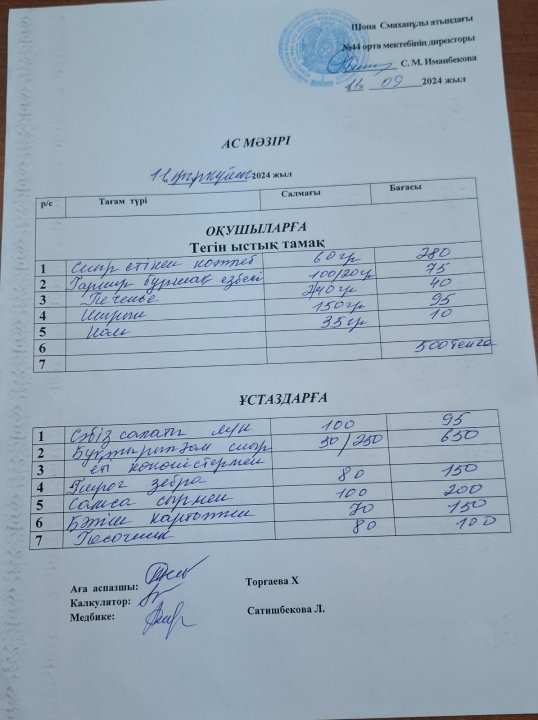 Шона Смаханұлы атындағы
№44 орта мектебінің директоры
С. М. Иманбекова
11 09 2024 жыл
АС МӘЗІРІ
11 қыркүйек 2024 жыл
р/с Тағам түрі Салмағы Бағасы
ОҚУШЫЛАРҒА
Тегін ыстық тамақ
1 Сиыр етінен котлет 60гр 280
2 Гарнир бұршақ езбесі 100/20гр 75
3 Печенье 240гр 40
4 Шырын 150гр 95
5 Нан 35гр 10
6 500тенге
7
ҰСТАЗДАРҒА
1 Сәбіз салаты 100 95
2 Бұқтырылған сиыр 50/250 650
3 еті көкөністермен
4 Пирог зебра 80 150
5 Самса сырмен 100 200
6 Бәтіш картоппен 70 150
7 Песочник 80 100
Аға аспазшы: Торғаева Х
Калкулятор:
Медбике: Сатишбекова Л.